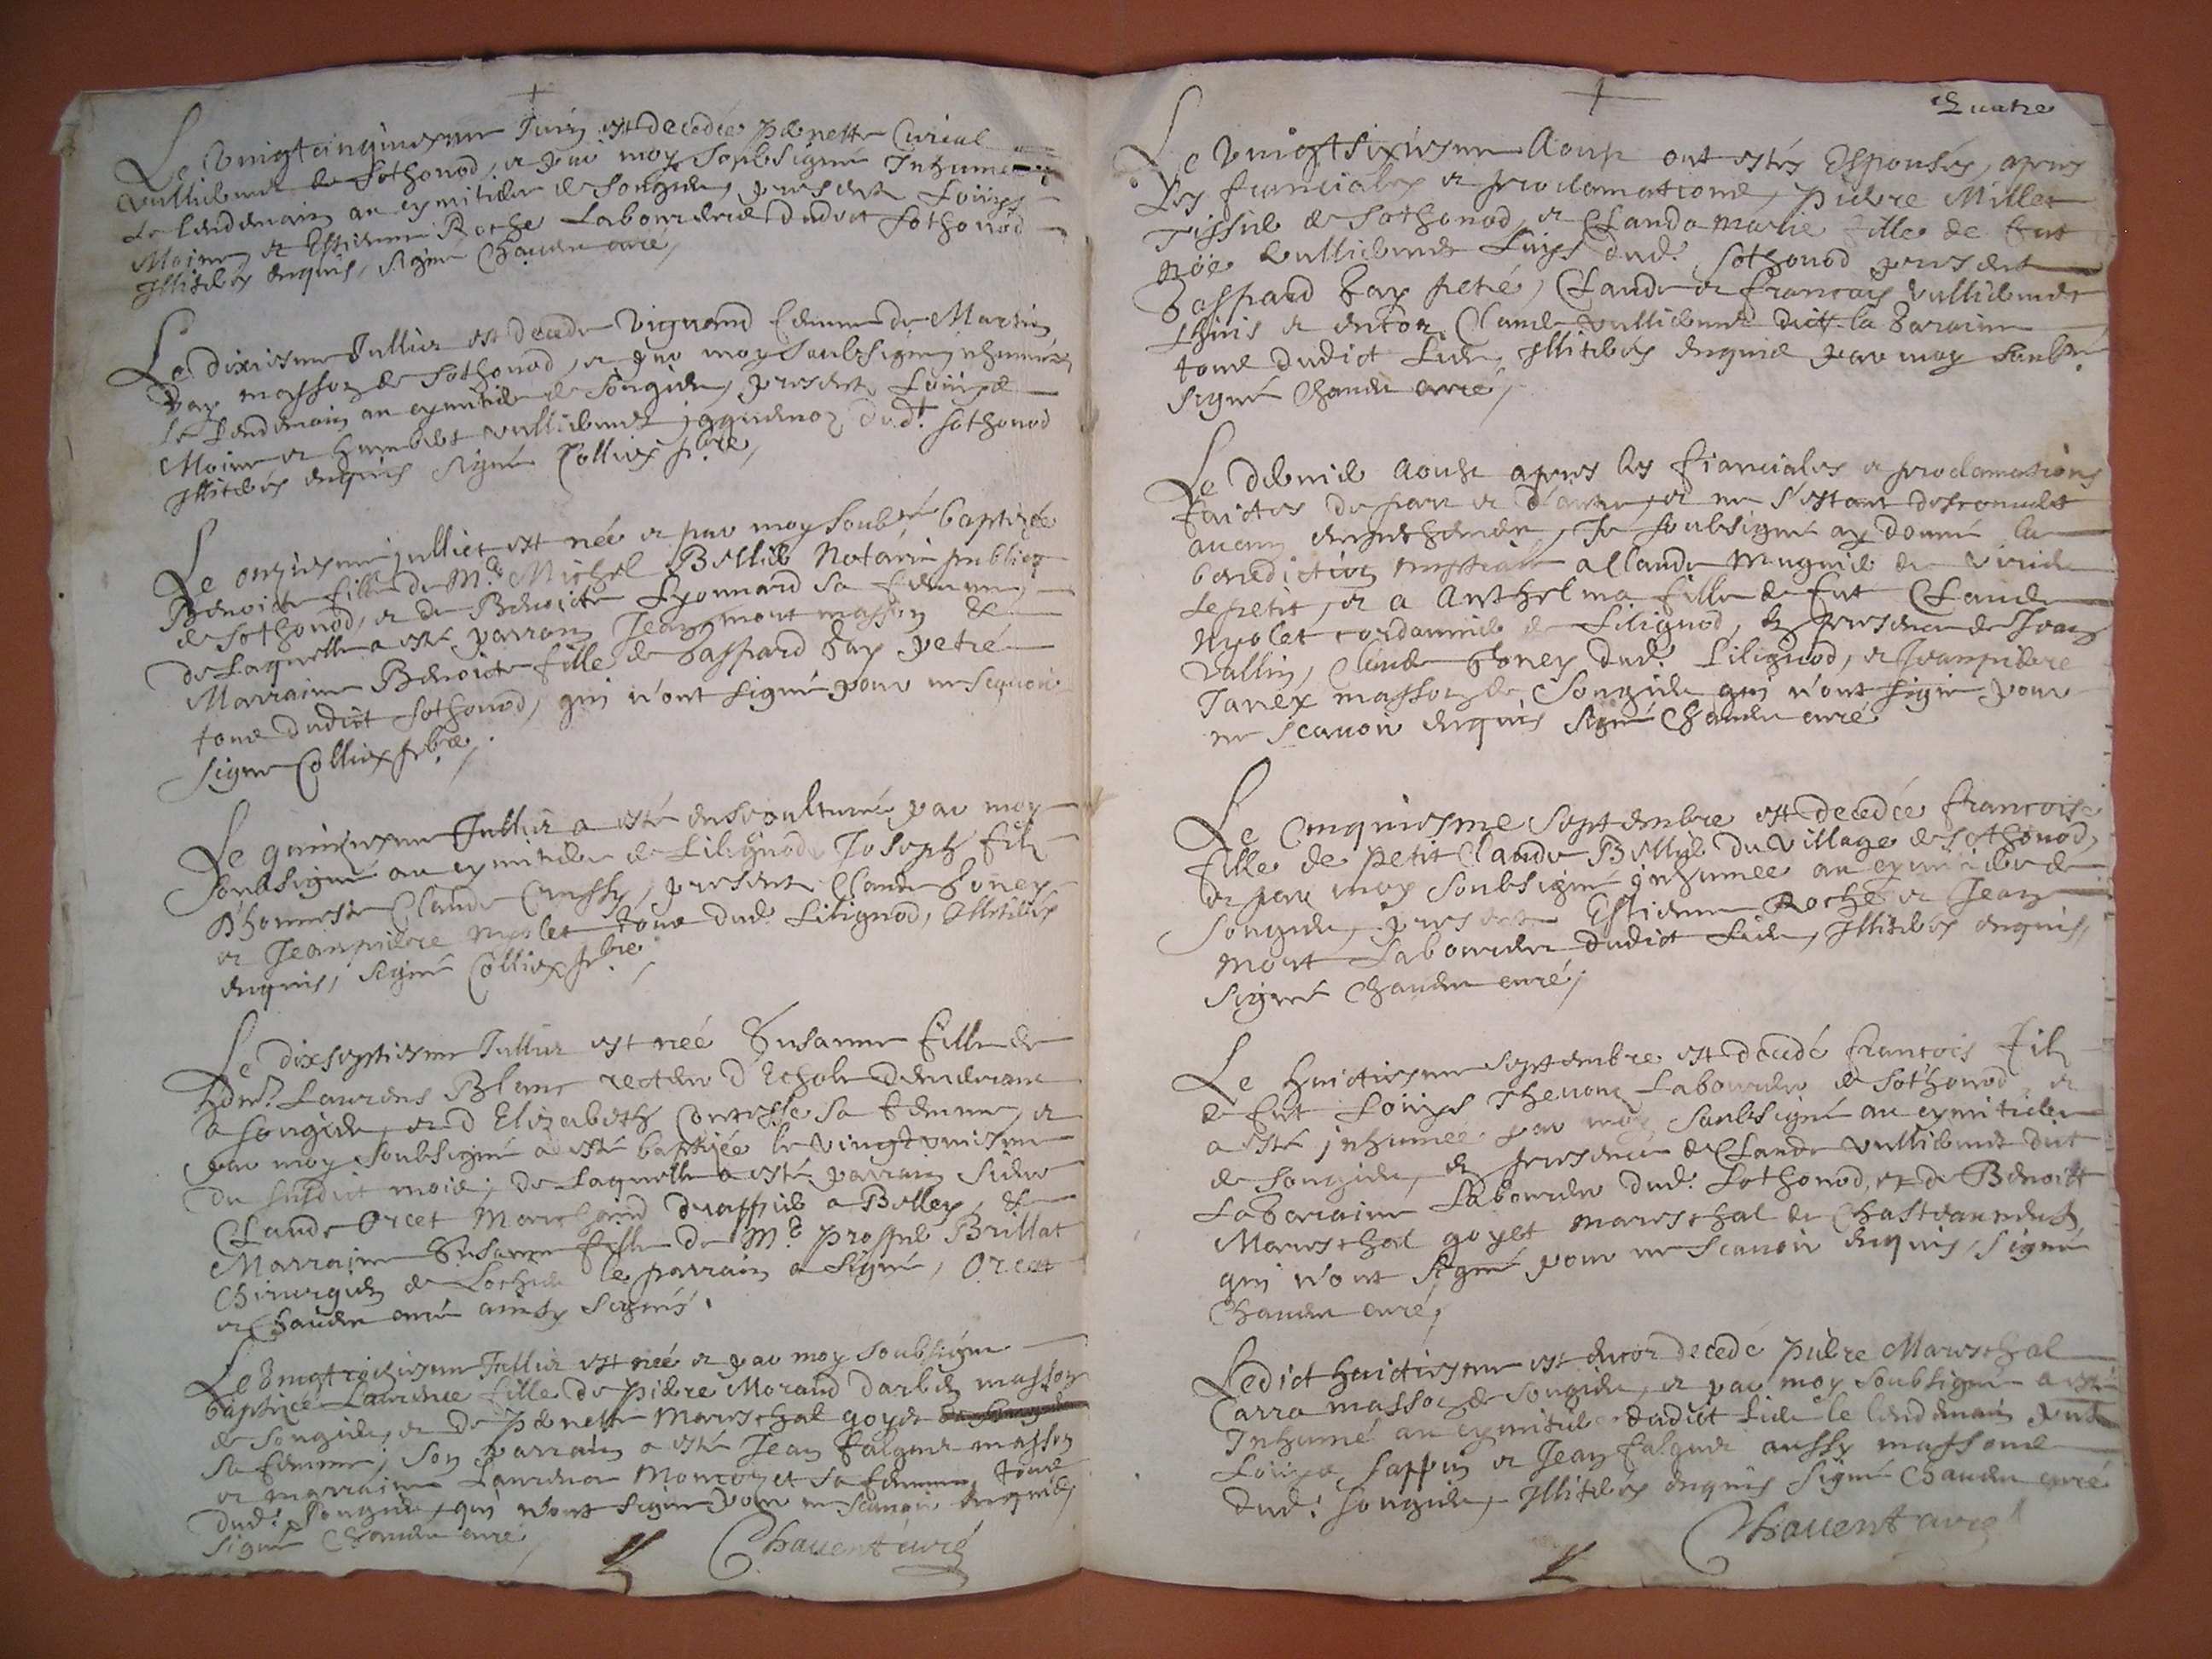 Le vingtcinquiesme Juin est decedée Pernette Curial
vulliermet de Sothonod, et par moy soubsigné Inhumée
le lendemain au cymitiere de Songieu, presents Loüys
Moine et Estienne Roche Laboureurs dudict Sothonod
Illiterés enquis, signé Chauent curé,
Le dixiesme Jullier est decedé femme de Martin
Gay masson de Sothonod, et par moy soubsigné inhumée
le lendemain au cymitiere de Songieu, presents Loüys
Moine et Humbert vulliermet dud.t Sothonod
Illiterés enquis signé Colliex p.bre,
Le onziesme julliet est née et par moy soub.né baptizée
Benoicte fille de M.e Michel Bellier Notaire public
de Sothonod, et de Benoicte Lyonnard sa femme,
de Laquelle a esté parrain Jean mont masson et
Marraine Benoicte fille de Gaspard Gay petré
tous dudict Sothonod, qui n'ont signé pour ne sçauoir
signé Colliex p.bre,
Le quinziesme Jullier a esté ensepulturé par moy
soubsigné au cymitiere de Lilignod Joseph filz
d'honneste Claude Crussy, presents Claude Goney
et Jeanpierre nycolet tous dud. Lilignod, Illiterés
enquis, signé Colliex p.bre,
Le dixseptiesme Jullier est née Susanne fille de
hon.e Laurens Blanc recteur d'Echole demeurant
a songieu, et d'Elizabeth Contesse sa femme, et
par moy soubsigné a esté baptizée le vingtroisieme
du susdict mois; de Laquelle a esté parrain sieur
Claude Orcet Marchand drappier a Belley, et
Marraine Susanne fille de M.e prosper Brillat
Chirurgien de Lochieu le parrain a signé, Orcet
et Chauent curé ainsy signés.
Le Vingtroisiesme Jullier est née et par moy soubsigné
baptizée Laurence fille de Pierre Morand masson
de Songieu, et de Pernette Mareschal goyet
sa femme; son parrain a esté Jean falquet masson
et marraine Laurence Moncozet sa femme, tous
dud. Songieu, qui n'ont signé pour ne scauoir enquis,
signé Chauent curé,
Chauent curé
Quatre
Le vingtsixiesme Aoust ont estés Espousés, apres
les fiancialles et proclamations, Pierre Millet
Tissier de Sothonod, et Clauda Marie fille de fut
noë vulliermet Luys dud. Sothonod presents
Gaspard Gay petré, Claude et françois vulliermet
Luis et encor Claude vulliermet dict la baraine
tous dudict Lieu, Illiterés enquis par moy soub.né
signé Chauent curé,
Le dernier Aoust apres les fiancialles et proclamations
faictes de part et d'autre, et ne s'estant descouuert
aucun empeschement, Je soubsigné ay donné la
benediction nuptiale a Claude Mugnier de virieu
le petit, et a Anthelma fille de fut Claude
nycolet cordannier de Lilignod, En presence de Jean
vallin, Claude Goney dud. Lilignod, et Jeanpierre
Janex masson de Songieu qui n'ont signé pour
ne scauoir enquis signé Chauent curé
Le Cinquiesme Septembre est decedée françoise
fille de petit Claude Bellier du village de Sothonod,
et par moy soubsigné inhumée au cymitiere de
Songieu, presents Estienne Roche et Jean
Mont Laboureurs dudict Lieu, Illiterés enquis,
signé Chauent curé,
Le huictiesme Septembre est decedé francois filz
de fut Loüys Theuenz Laboureur de Sothonod, et
a esté jnhumé par moy soubsigné au cymitiere
de Songieu, En presence de Claude vulliermet dict
La baraine Laboureur dud. Sothonod, et de Benoict
Mareschal goyet mareschal de Chasteauneuf,
qui n'ont signé pour ne scauoir enquis, signé
Chauent curé,
Ledict huictiesme est encor decedé Pierre Mareschal
Carra masson de Songieu, et par moy soubsigné a esté
Inhumé au cymitiere dudict Lieu le lendemain pnts
Loüys Sappin et Jean falquet aussy massons
dud. Songieu, Illiterés enquis signé Chauent curé
Chauent curé